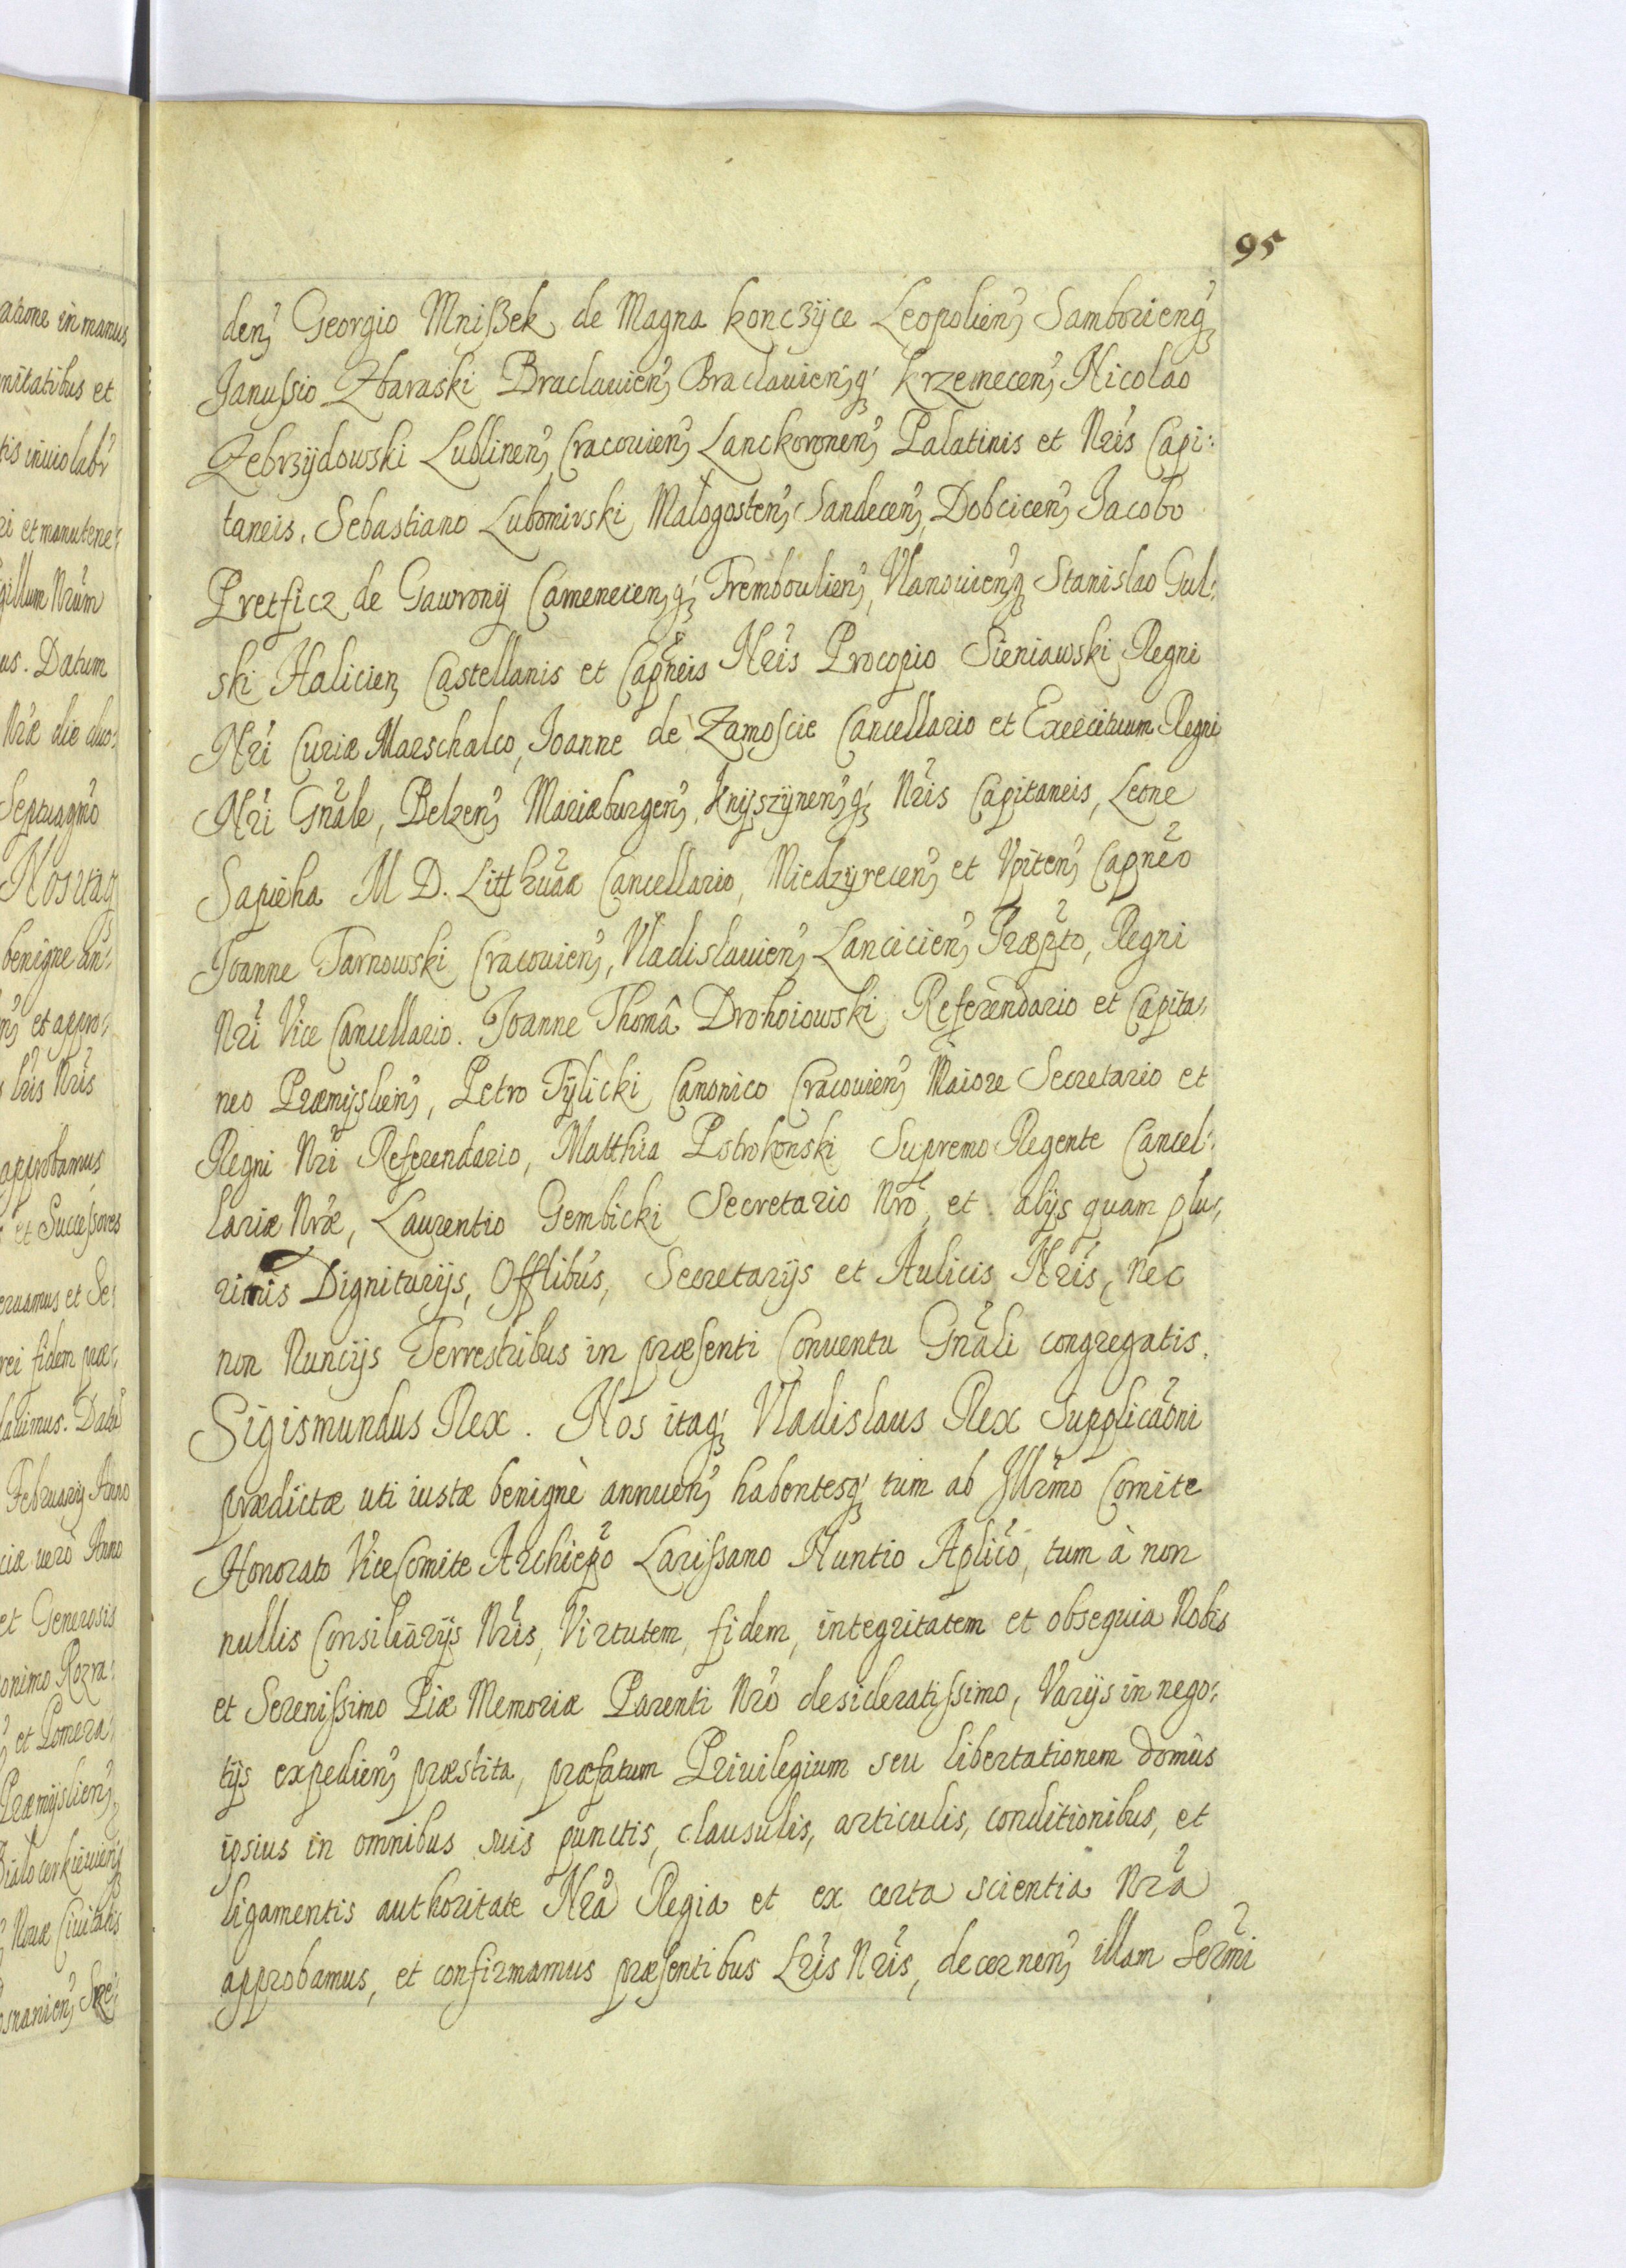 95
atione in manus
nitatibus et
tis inviolabr
ri et manutene:
gillum Nrum
us. Datum
Nræ die duo:
Septuagmo
Nos itaq
benigne an:
et appro:
lris Nris
approbamus
et Successores
eruamus et Se:
rei fidem præ:
Februarij Anno
ciæ uero Anno
et Generosis
onimo Rozra:
et Pomera:
Præmyslien,
Bialocerkieuienq
Nouæ Ciuitatis
osnanien, Sre:
den, Georgio Mnißek de Magna Konczyce Leopolien, Samborienq
Janussio Zbaraski Braclauien, Braclauienq Krzemecen, Nicolao
Zebrzydowski Lublinen, Cracouien, Lanckoronen, Palatinis et Nris Capi:
taneis. Sebastiano Lubomirski Malogosten, Sandecen, Dobcicen, Jacobo
Pretficz de Gawrony Camenecenq, Tremboulien, Vlanouienq Stanislao Gul:
ski Halicien, Castellanis et Capneis Nris Procopio Sieniawski Regni
Nri Curiæ Marschalco, Joanne de Zamoscie Cancellario et Exercituum Regni
Nri Gnale, Belzen, Mariæburgen, Knyszynenq Nris Capitaneis, Leone
Sapieha M D. Litthuaæ Cancellario, Miedzyrecen, et Vpiten, Capneo
Joanne Tarnowski Cracouien, Vladislauien, Lancicien, Præpto, Regni
Nri Vice Cancellario. Joanne Thomâ Drohoiowski Referendario et Capita:
neo Præmyslien, Petro Tylicki Canonico Cracouien, Maiore Secretario et
Regni Nri Referendario, Matthia Pstrokonski Supremo Regente Cancel:
lariæ Nræ, Laurentio Gembicki Secretario Nro, et alijs quam plu:
rimis Dignitarijs, Offlibus, Secretarijs et Aulicis Nris, nec
non Nuncijs Terrestribus in præsenti Conuentu Gnali congregatis.
Sigismundus Rex. Nos itaq Vladislaus Rex Supplicaoni
prædictæ uti iustæ benignè annuen, habentesq tum ab Illrmo Comite
Honorato ViceComite Archiepo Larissano Nuntio Aplico, tum à non
nullis Consiliarijs Nris, Virtutem, fidem, integritatem et obsequia Nobis
et Serenissimo Piæ Memoriæ Parenti Nro desideratissimo, Varijs in nego:
tijs expedien, præstita, præfatum Priuilegium seu libertationem domûs
ipsius in omnibus suis punctis, clausulis, articulis, conditionibus, et
ligamentis authoritate Nra Regia et ex certa scientia Nra
approbamus, et confirmamus præsentibus Lris Nris, decernen, illam Sermi